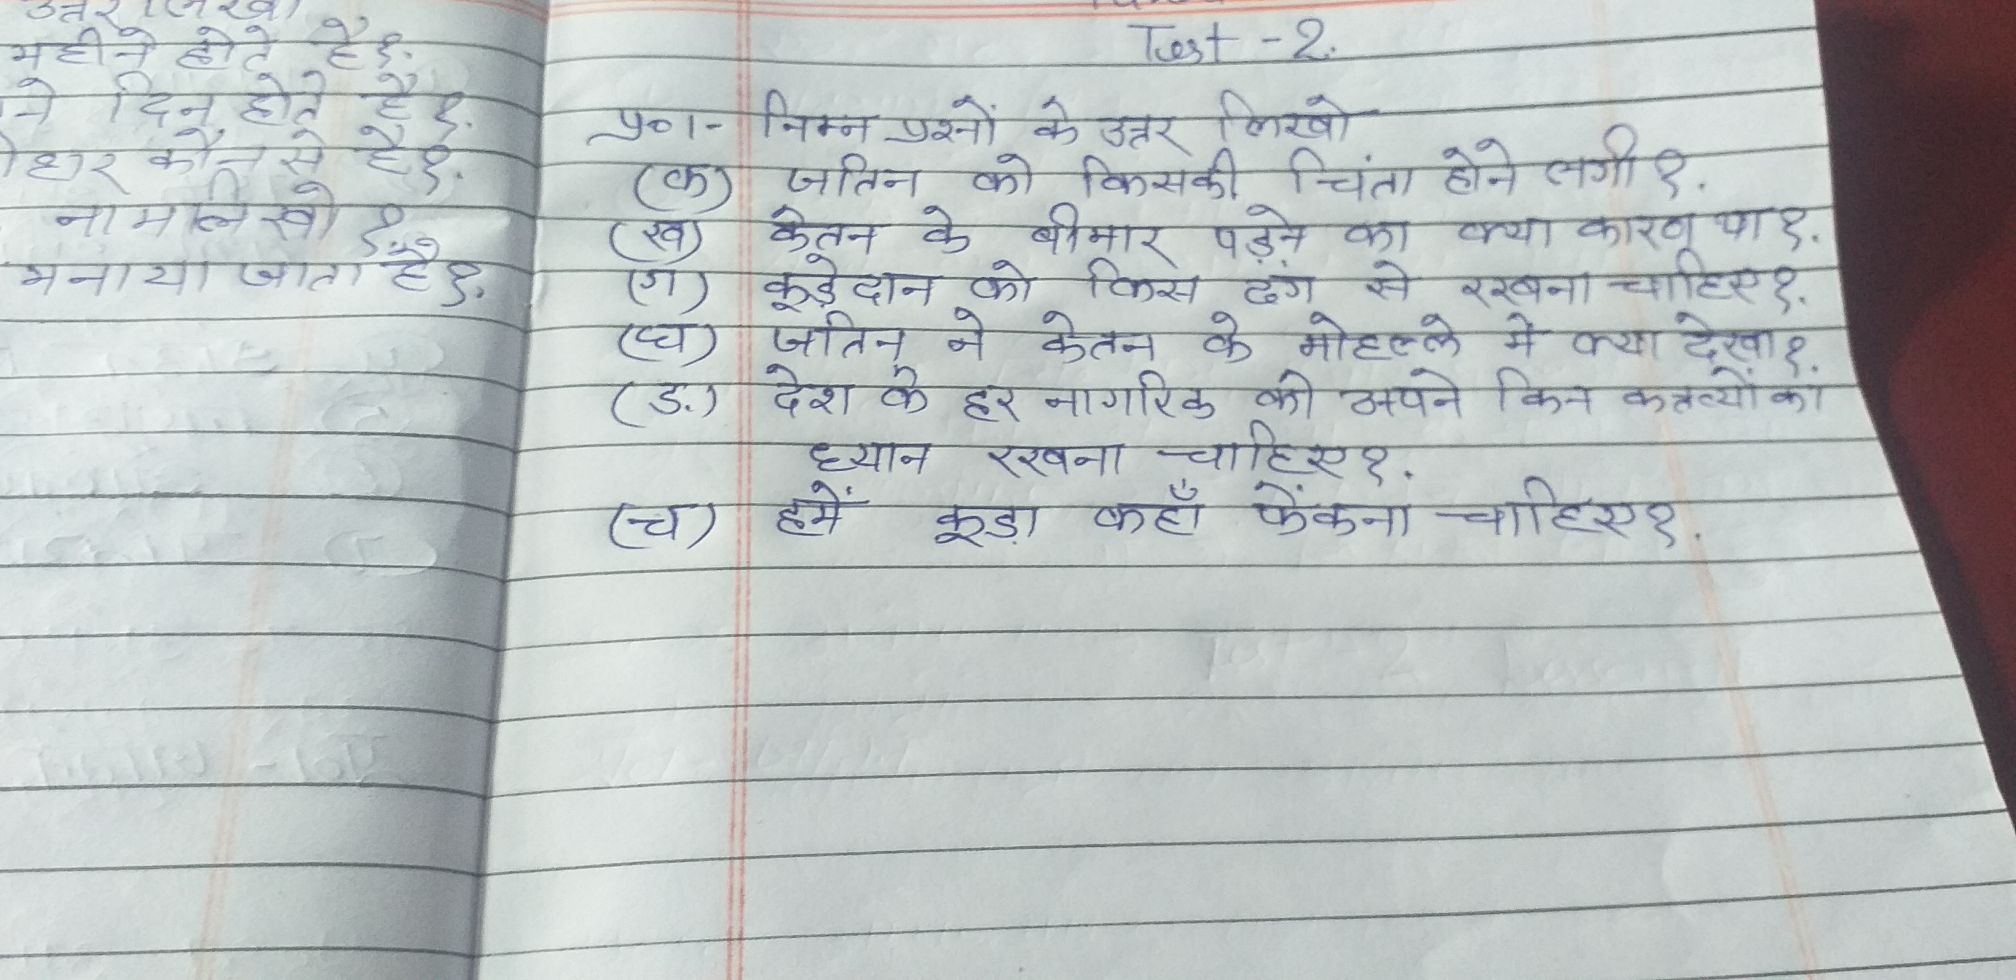 महीने होते है?
ने दिन होते है?
कौन से है?
नाम लिखो?
मनाया जाता है?
Test - 2.
प्र०1- निम्न प्रश्नों के उत्तर लिखो
(क) जतिन को किसकी चिंता होने लगी?
(ख) केतन के बीमार पड़ने का क्या कारण था?
(ग) कूड़ेदान को किस ढंग से रखना चाहिए?
(घ) जतिन ने केतन के मोहल्ले में क्या देखा?
(ड.) देश के हर नागरिक को अपने किन कत्तव्यों का
ध्यान रखना चाहिए?
(च) हमें कूड़ा कहाँ फेंकना चाहिए?